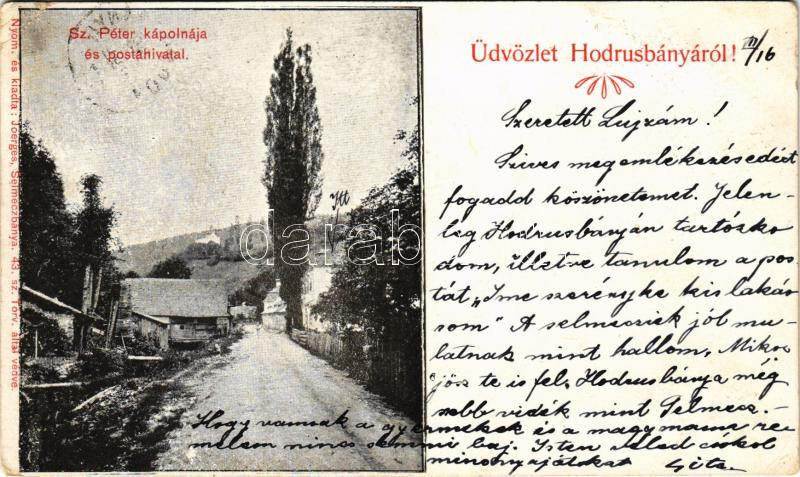 Sz. Péter kápolnája
és postahivatal.
Nyom. és kiadta: Joerges, Selmeczbánya. 43. sz. Törv. által védve.
Üdvözlet Hodrusbányáról!
III/16
Szeretett Lujzám!
Szives megemlékezésedért
fogadd köszönetemet. Jelen-
leg Hodrusbányán tartózko
dom, illetve tanulom a pos
tát „Ime szerényke kis laká-
som" A selmecziek jól mu-
latnak mint hallom, Mikor
jösz te is fel, Hodrusbánya még
szebb vidék mint Selmecz.-
Hogy vannak a gyermekek és a nagymama re
mélem nincs semmi baj. Isten veled csókol
mindnyájatokat Gita
Itt
darabanth